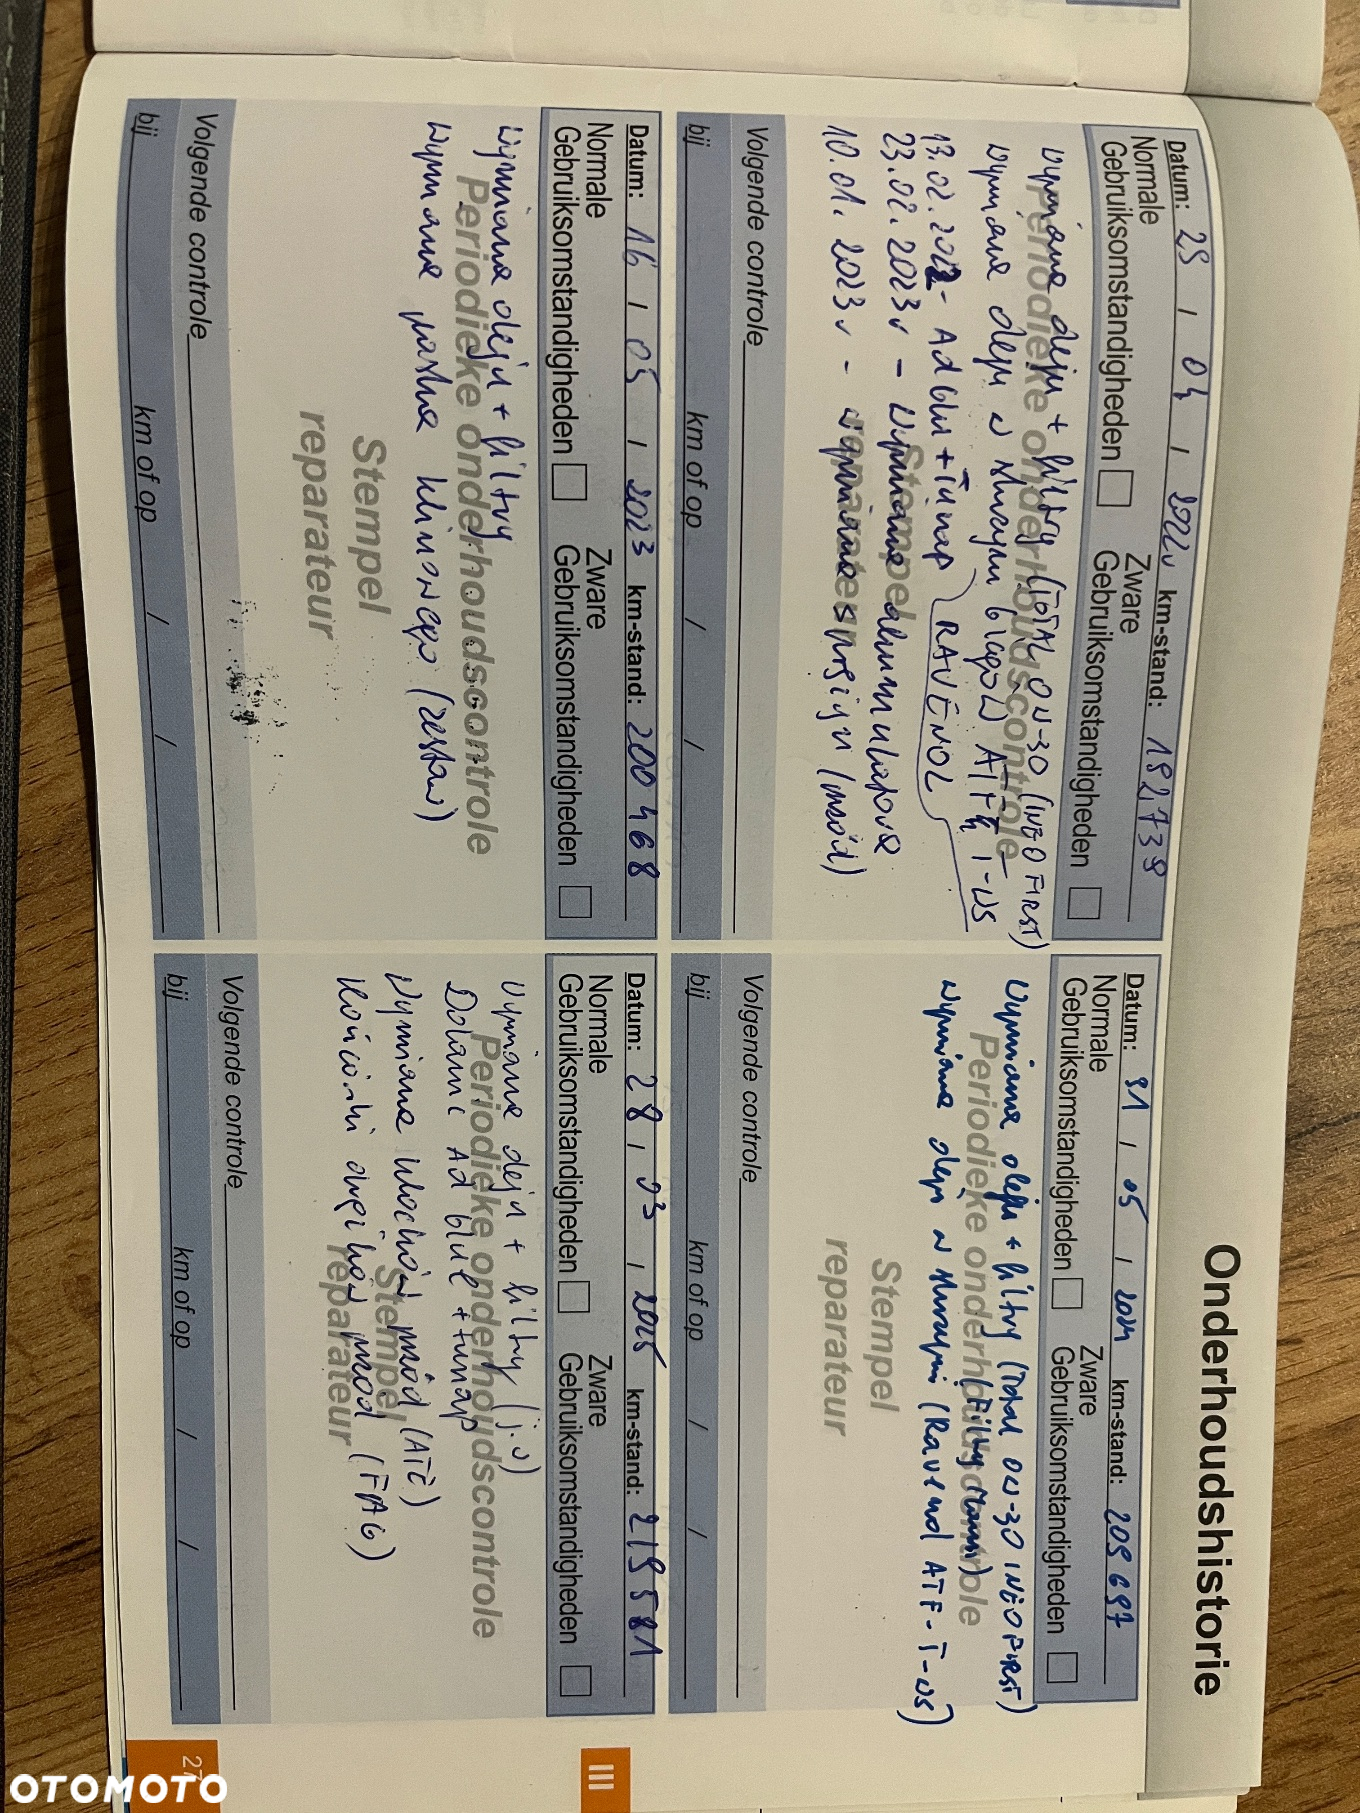 Onderhoudshistorie
Datum: 25 / 04 / 2022r km-stand: 182739
Normale Gebruiksomstandigheden Zware Gebruiksomstandigheden
Periodieke onderhoudscontrole
Wymiana oleju + filtry (TOTAL 0W-30 (INEO FIRST)
Wymiana oleju w skrzyni biegów ATF T-WS
13.02.2022 - Adblu + Tunap RAVENOL
23.02.2023r - Wymiana akumulatora
10.01.2023r - wymiana sprężyn (przód)
Stempel
reparateur
Volgende controle
bij km of op / /
Datum: 31 / 05 / 2024 km-stand: 209697
Normale Gebruiksomstandigheden Zware Gebruiksomstandigheden
Periodieke onderhoudscontrole
Wymiana oleju + filtry (Total 0W-30 INEO FIRST)
(Filtry Mann)
Wymiana oleju w skrzyni (Ravenol ATF-T-WS)
Stempel
reparateur
Volgende controle
bij km of op / /
Datum: 16 / 05 / 2023 km-stand: 200468
Normale Gebruiksomstandigheden Zware Gebruiksomstandigheden
Periodieke onderhoudscontrole
Wymiana oleju + filtry
Wymiana paska klinowego (zestaw)
Stempel
reparateur
Volgende controle
bij km of op / /
Datum: 28 / 03 / 2025 km-stand: 219581
Normale Gebruiksomstandigheden Zware Gebruiksomstandigheden
Periodieke onderhoudscontrole
Wymiana oleju + filtry (j.w)
Dolanie Ad blue + tunap
Wymiana klocków przód (ATE)
Końcówki drążków przód (FAG)
Stempel
reparateur
Volgende controle
bij km of op / /
III
27
OTOMOTO